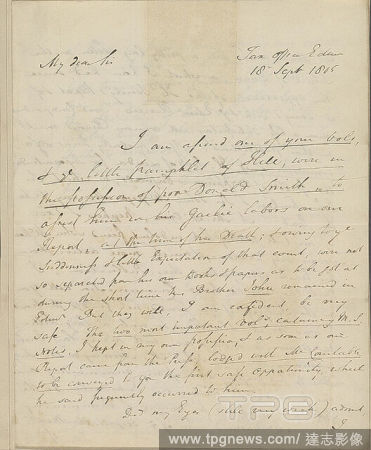 My dear Sir
Tax office Edinr
18 Sept 1805
I am afraid one of your vols,
& yr little pamphlet of , were in
the possession of poor Donald Smith, to
assist him in his Gaelic labors on our
Report, at the time of his Death; & owing to ye
Suddenness & little Expectation of that event, were not
so separated from his own Books & papers as to be got at
during the short time his Brother John remained in
Edinr But they will, I am confident, be very
safe The two most important vols, containing M.S.
Notes, I kept in my own possession, & as soon as our
Report came from the Press, lodged with Mr Constable
to be conveyed to you the first safe opportunity, which
he said frequently occurred to him.
Did my Eyes (& my work) admit
I
TPG
www.tpgnews.com / 達志影像